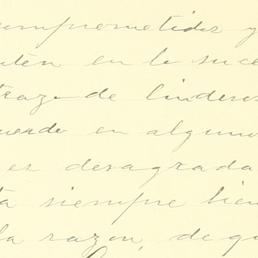 comprometidos y
estén en lo suce
trazo de linderos
cuerdo en alguno
es desagrada
ta siempre bien
la razon, de qu